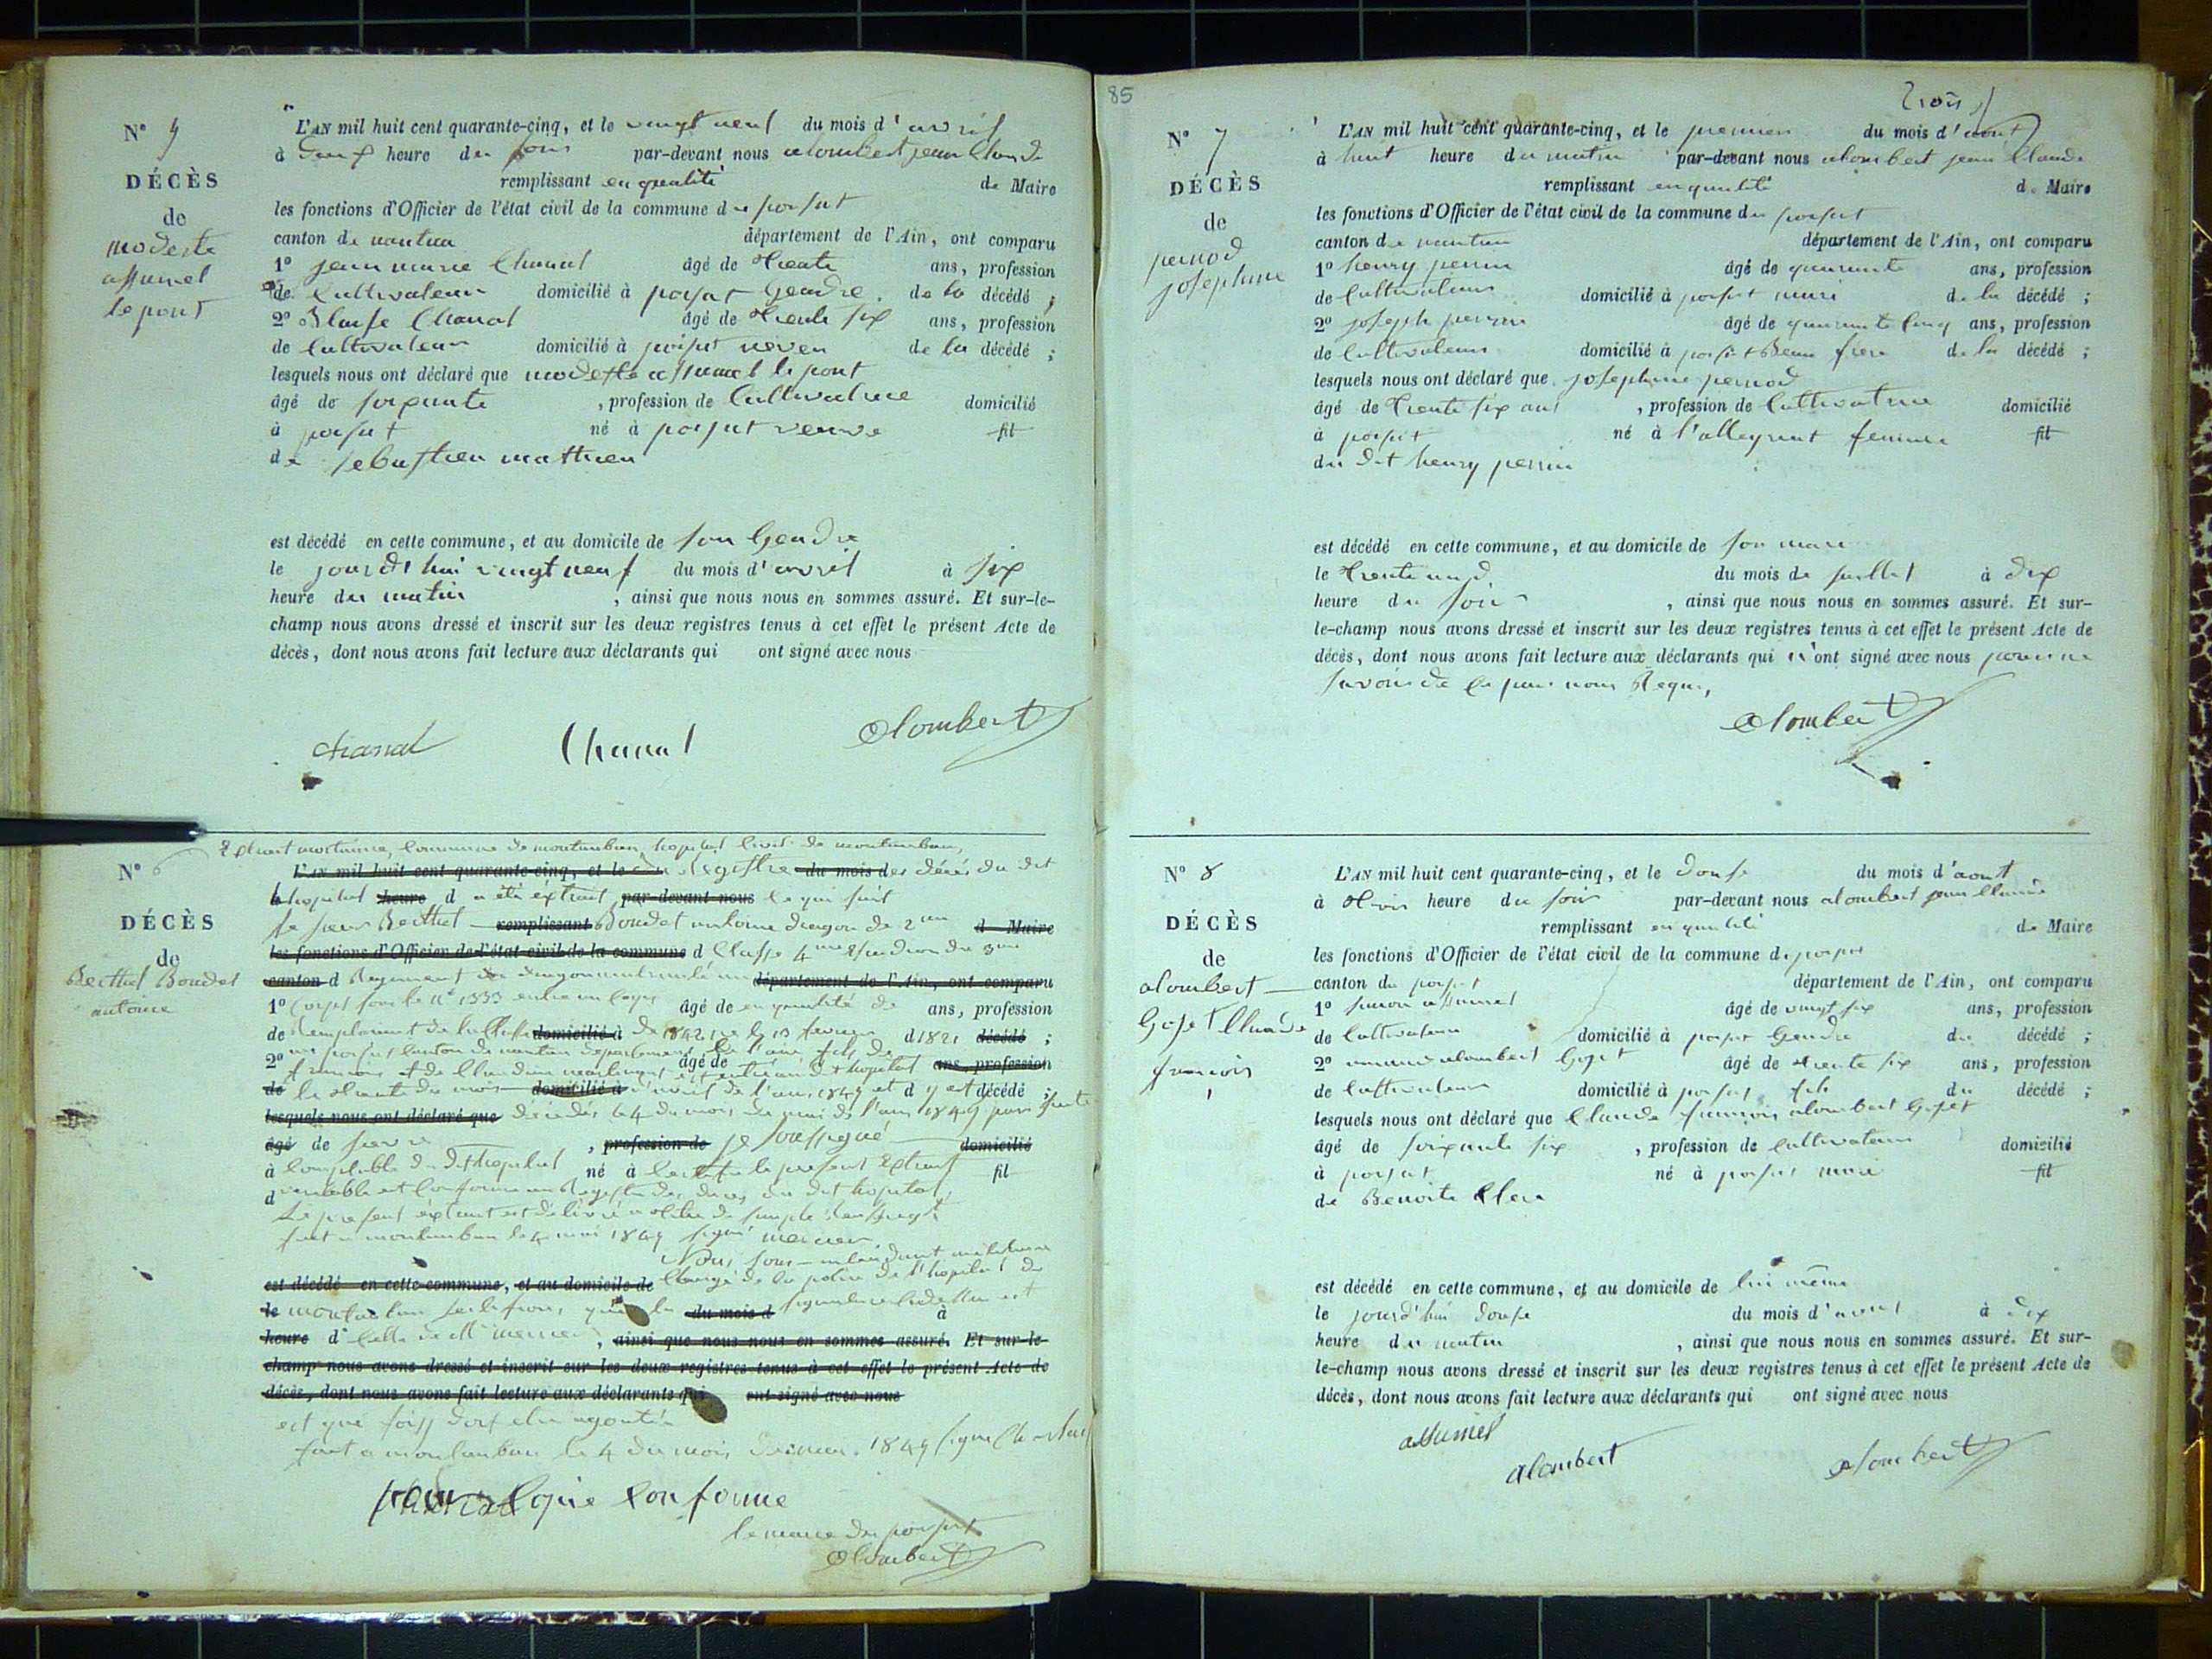 N° 5
DÉCÈS
de
modeste
assumel
lepont
L'AN mil huit cent quarante-cinq, et le vingt neuf du mois d'avril
à deux heure du soir par-devant nous alombert jean Claude
remplissant en qualité de Maire
les fonctions d'Officier de l'état civil de la commune du poisat
canton de nantua département de l'Ain, ont comparu
1° jean marie Chanal âgé de trente ans, profession
de Cultivateur domicilié à poisat Gendre de la décédé ;
2° Blaise Chanal âgé de trente six ans, profession
de Cultivateur domicilié à poisat neveu de la décédé ;
lesquels nous ont déclaré que modeste assumel le pont
âgé de soixante , profession de Cultivatrice domicilié
à poisat né à poisat veuve fil
de sebastien mathieu
est décédé en cette commune, et au domicile de son Gendre
le jourd'hui vingt neuf du mois d'avril à six
heure du matin , ainsi que nous nous en sommes assuré. Et sur-le-
champ nous avons dressé et inscrit sur les deux registres tenus à cet effet le présent Acte de
décès, dont nous avons fait lecture aux déclarants qui ont signé avec nous
chanal Chanal alombert
N° 6
DÉCÈS
de
Berthet Boudet
antoine
Extrait mortuaire, Commune de montauban, hopital Civil de montauban,
L'AN mil huit cent quarante-cinq, et le du Registre du mois des décès du dit
hopital heure d a été extrait par-devant nous ce qui suit
le sieur Berthet remplissant Boudet antoine dragon de 2me d Maire
les fonctions d'Officier de l'état civil de la commune d Classe 4me Escadron du 3me
canton d Regiment de dragon département de l'Ain, ont comparu
1° Corps sous le n° 1333 âgé de en qualité de ans, profession
de Remplacant de la Classe domicilié à de 1842 né le 10 fevrier d 1821 décédé ;
2° au poisat Canton de nantua departement de l'ain fils de âgé de
francois et de Claudine est entré au dit hopital ans, profession
de le trente du mois domicilié à d'avril de l'an 1845 et d y est décédé ;
lesquels nous ont déclaré que decedé le 4 du mois de mai de l'an 1845 par suite
âgé de fievre , profession de je soussigné domicilié
à Comptable du dit hopital né à Certifie le present Extrait fil
d veritable et Conforme au Registre des deces du dit hopital
Le present extrait est délivré a titre de simple
fait a montauban le 4 mai 1845 signé mercier
Nous sous-intendant militaire
est décédé en cette commune, et au domicile de Chargé de la police de l'hopital de
le montauban Certifions que la du mois d signature est à
heure d Celle de Mr mercier , ainsi que nous nous en sommes assuré. Et sur-le-
champ nous avons dressé et inscrit sur les deux registres tenus à cet effet le présent Acte de
décès, dont nous avons fait lecture aux déclarants qui ont signé avec nous
et que foi doit etre ajoutée
fait a montauban le 4 du mois 1845 signé
pour Copie Conforme
le maire du poisat
alombert
85
N° 7
DÉCÈS
de
pernod
josephine
trois
L'AN mil huit cent quarante-cinq, et le premier du mois d'aout
à huit heure du matin par-devant nous alombert jean Claude
remplissant en qualité de Maire
les fonctions d'Officier de l'état civil de la commune du poisat
canton de nantua département de l'Ain, ont comparu
1° henry perrin âgé de quarante ans, profession
de Cultivateur domicilié à poisat mari de la décédé ;
2° joseph perrin âgé de quarante cinq ans, profession
de Cultivateur domicilié à poisat Beau frere de la décédé ;
lesquels nous ont déclaré que josephine pernod
âgé de trente six ans , profession de Cultivatrice domicilié
à poisat né à l'alleyriat femme fil
du dit henry perrin
est décédé en cette commune, et au domicile de son mari
le trente un du mois de juillet à dix
heure du soir , ainsi que nous nous en sommes assuré. Et sur-
le-champ nous avons dressé et inscrit sur les deux registres tenus à cet effet le présent Acte de
décès, dont nous avons fait lecture aux déclarants qui n'ont signé avec nous pour ne
savoir de ce par nous Requi,
alombert
N° 8
DÉCÈS
de
alombert
Goget Claude
francois
L'AN mil huit cent quarante-cinq, et le douse du mois d'aout
à trois heure du soir par-devant nous alombert jean Claude
remplissant en qualité de Maire
les fonctions d'Officier de l'état civil de la commune du poisat
canton du poisat département de l'Ain, ont comparu
1° simon assumel âgé de vingt six ans, profession
de Cultivateur domicilié à poisat Gendre du décédé ;
2° alombert Goget âgé de trente six ans, profession
de Cultivateur domicilié à poisat fils du décédé ;
lesquels nous ont déclaré que Claude francois alombert Goget
âgé de soixante six , profession de Cultivateur domicilié
à poisat né à poisat mari fil
de Benoite Clerc
est décédé en cette commune, et au domicile de lui même
le jourd'hui douse du mois d'aout à dix
heure du matin , ainsi que nous nous en sommes assuré. Et sur-
le-champ nous avons dressé et inscrit sur les deux registres tenus à cet effet le présent Acte de
décès, dont nous avons fait lecture aux déclarants qui ont signé avec nous
assumel
alombert alombert